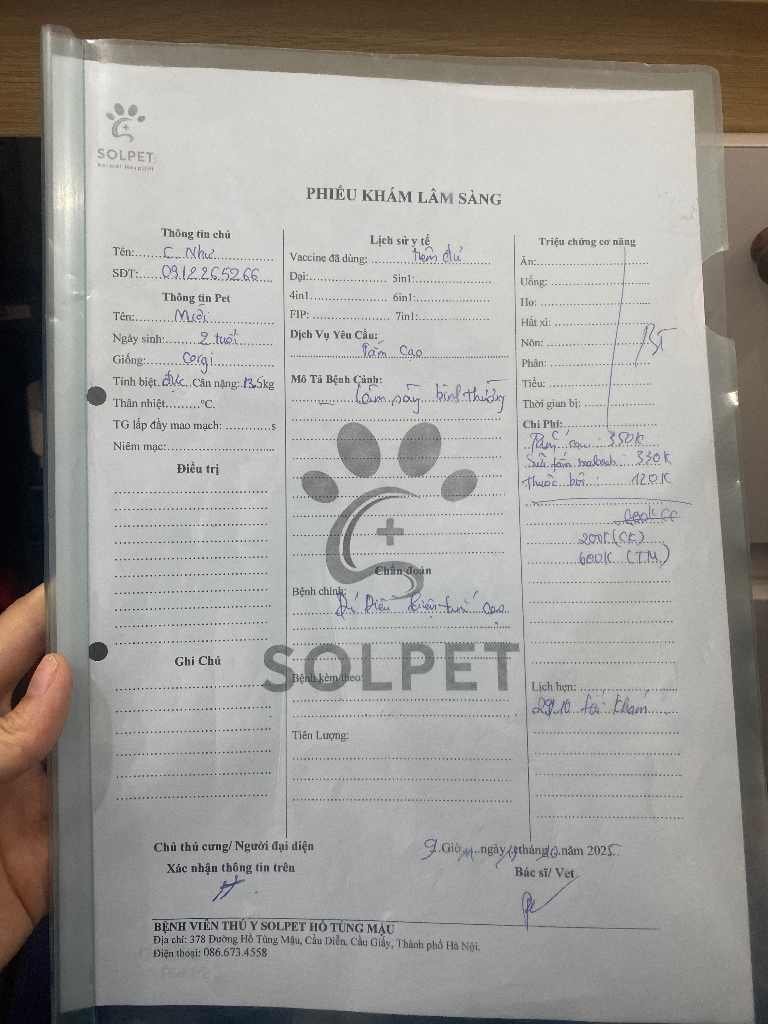 SOLPET
Animal Hospital
PHIẾU KHÁM LÂM SÀNG
Thông tin chủ
Tên: C Như
SĐT: 0912265266
Thông tin Pet
Tên: Muối
Ngày sinh: 2 tuổi
Giống: Corgi
Tính biệt. đực Cân nặng: 13.5kg
Thân nhiệt.........°C.
TG lấp đầy mao mạch:............s
Niêm mạc:
Điều trị
Ghi Chú
Lịch sử y tế
Vaccine đã dùng: tiêm đủ
Dại: 5in1:
4in1 6in1:
FIP: 7in1:
Dịch Vụ Yêu Cầu:
Tắm cạo
Mô Tả Bệnh Cảnh:
Lâm sàng bình thường
Chẩn đoán
Bệnh chính:
cạo
SOLPET
Bệnh kèm theo:
Tiên Lượng:
Triệu chứng cơ năng
Ăn:
Uống:
Ho:
Hắt xì:
Nôn:
BT
Phân:
Tiểu:
Thời gian bị:
Chi Phí:
: 350K
Sữa tắm : 330K
Thuốc bôi : 120K
200K (CK)
600K (TM)
Lịch hẹn:
tái khám
Chủ thú cưng/ Người đại diện
Xác nhận thông tin trên
9 Giờ ngày tháng năm 2025
Bác sĩ/ Vet
BỆNH VIỆN THÚ Y SOLPET HỒ TÙNG MẬU
Địa chỉ: 378 Đường Hồ Tùng Mậu, Cầu Diễn, Cầu Giấy, Thành phố Hà Nội.
Điện thoại: 086.673.4558